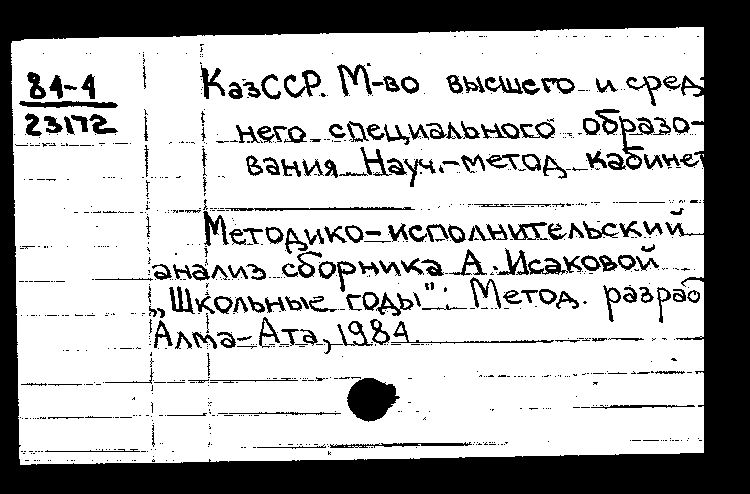 84-4
23172
КазССР. М-во высшего и сред
него специального образо-
вания Науч.-метод. кабинет
Методико-исполнительский
анализ сборника А. Исаковой
„Школьные годы": Метод. разраб
Алма-Ата, 1984.